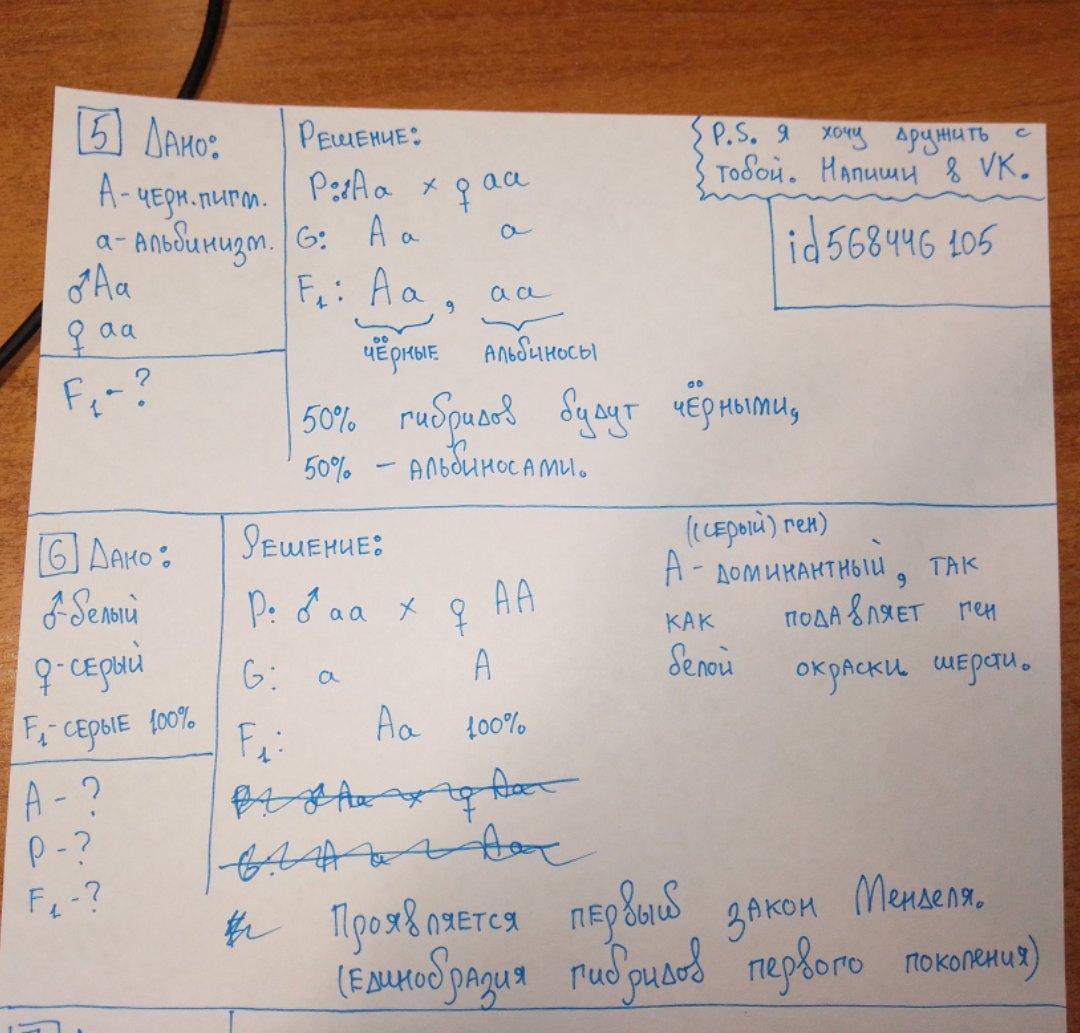 5 Дано:
А - черн. пигм.
а - альбинизм.
♂Аа
♀ аа
F₁ - ?
Решение:
P: ♂Аа × ♀ аа
G: А а а
F₁: Аа, аа
чёрные альбиносы
50% гибридов будут чёрными,
50% - альбиносами.
P.S. я хочу дружить с
тобой. Напиши в VK.
id568446105
6 Дано:
♂-белый
♀-серый
F₁-серые 100%
А - ?
P - ?
F₁ - ?
Решение:
P: ♂ аа × ♀ АА
G: а А
F₁: Аа 100%
P: ♂ Аа × ♀ Аа
G: А а Аа
((серый) ген)
А - доминантный, так
как подавляет ген
белой окраски шерсти.
Проявляется первый закон Менделя.
(Единобразия гибридов первого поколения)